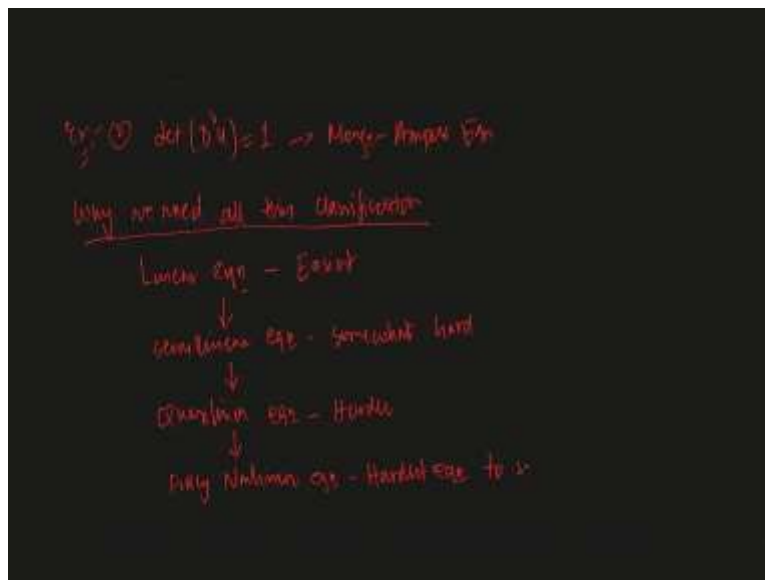 Ex:- ② det(D²u) = 1 → Monge-Ampere Eqn
Why we need all this classification
Linear eqn - Easist
↓
semilinear eqn - somewhat hard
↓
Quasilinear eqn - Harder
↓
Fully Nonlinear eqn - Hardest eqn to s